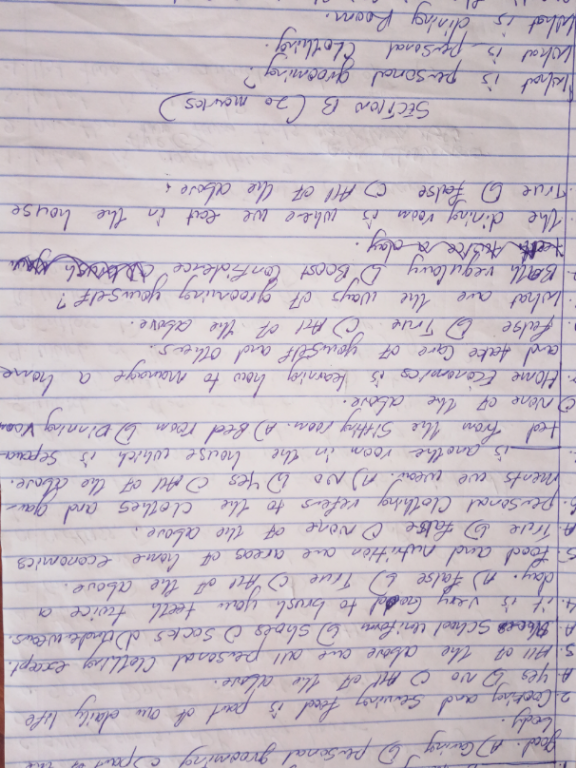 good. A) Caring b) personal grooming c) part of the
body.
2. Cooking and serving food is part of our daily life
A. Yes b) No c) All of the above.
3. All of the above are all personal Clothing except.
A. School Uniform b) Shoes c) Socks d)
4. It is very Good to brush your teeth twice a
day. A) false b) True c) All of the above.
5. Food and nutrition are areas of home economics
A True b) false c) None of the above.
personal Clothing refers to the clothes and gar-
ments we wear. A) No b) Yes c) All of the above.
is another room in the house which is separa
ted from the Sitting room. A) Bed room b) Dinning room
c) None of the above.
Home Economics is learning how to manage a home
and take Care of yourself and others.
false b) True c) All of the above.
What are the ways of grooming yourself?
Bath regulary b) Boost Confidence
teeth twice a day.
The dining room is where we eat in the house
True b) false c) All of the above.
SECTION B (20 marks)
What is personal grooming?
What is personal Clothing.
What is dining Room.